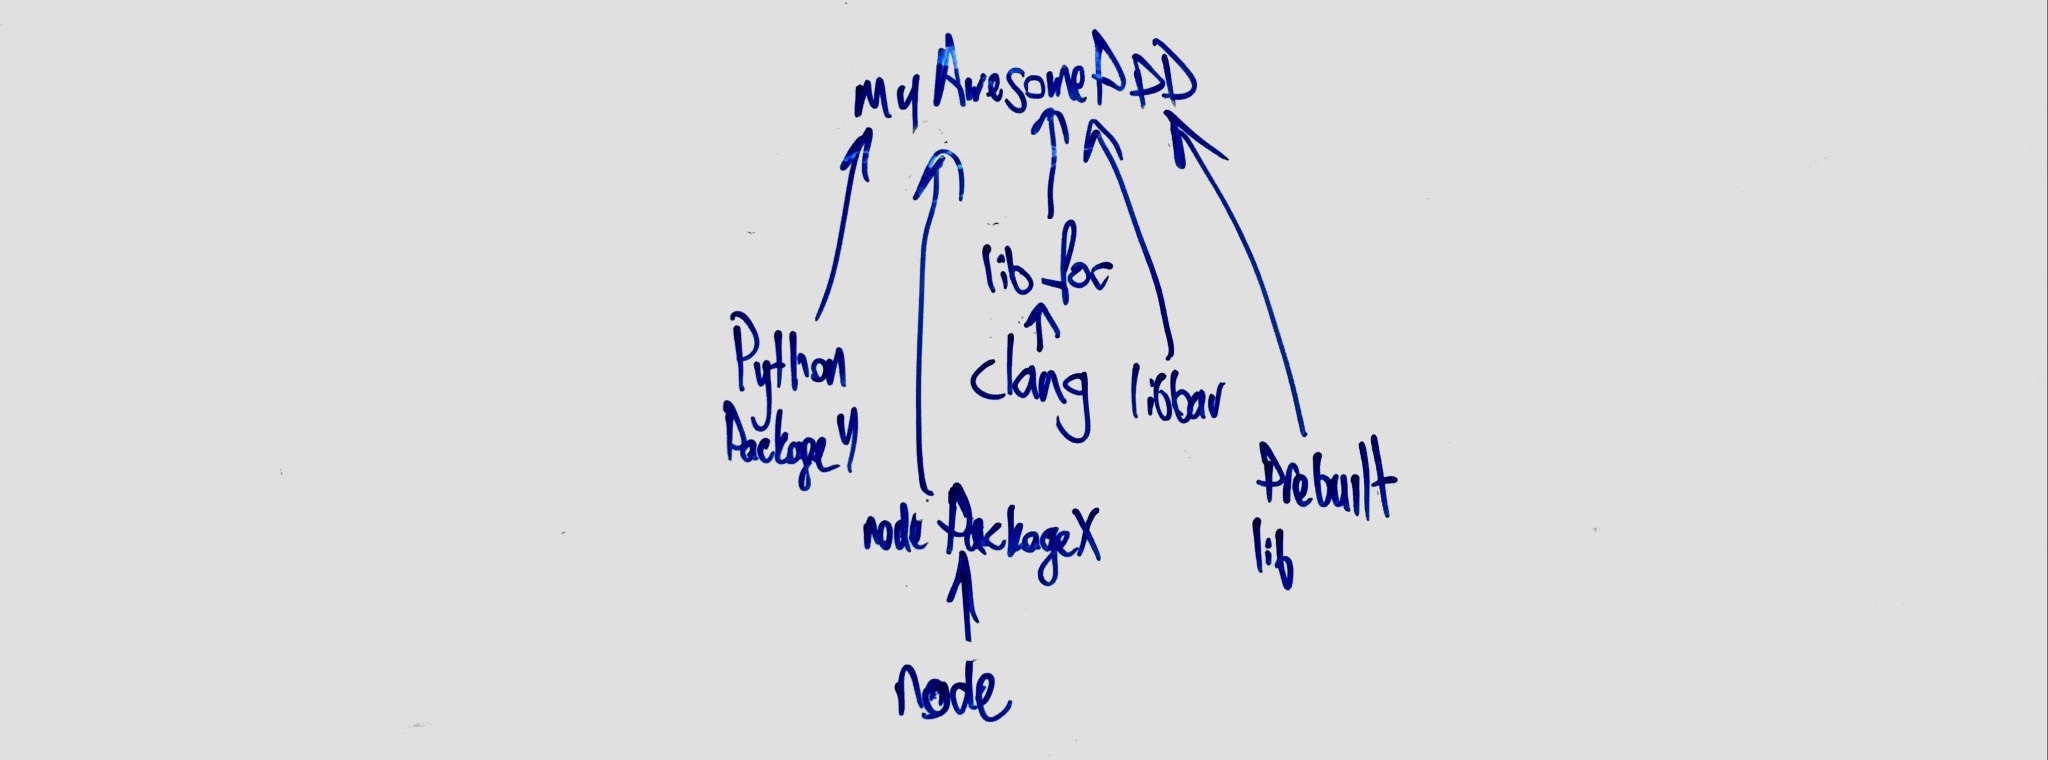 myAwesomeApp
lib foo
Python
PackageY
clang
libbar
Prebuilt
lib
node PackageX
node